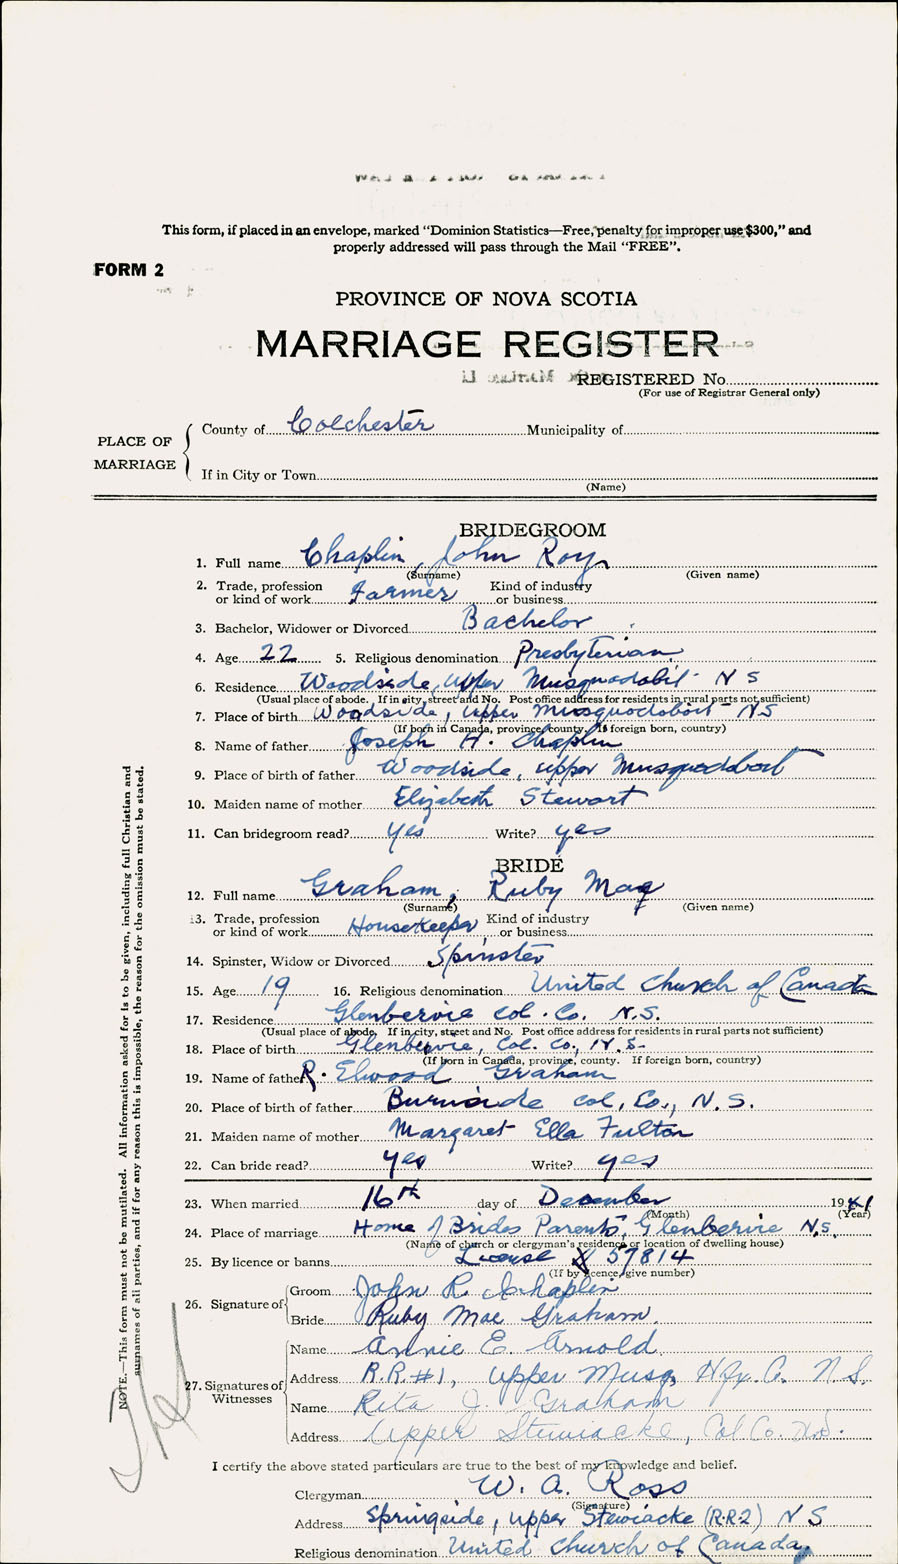 This form, if placed in an envelope, marked "Dominion Statistics—Free, penalty for improper use $300," and
properly addressed will pass through the Mail "FREE".
FORM 2
PROVINCE OF NOVA SCOTIA
MARRIAGE REGISTER
REGISTERED No.
(For use of Registrar General only)
PLACE OF MARRIAGE
County of Colchester Municipality of
If in City or Town
(Name)
BRIDEGROOM
1. Full name Chaplin, John Roy
(Surname) (Given name)
2. Trade, profession or kind of work Farmer Kind of industry or business
3. Bachelor, Widower or Divorced Bachelor
4. Age 22 5. Religious denomination Presbyterian
6. Residence Woodside, Upper Musquodobit N S
(Usual place of abode. If in city, street and No. Post office address for residents in rural parts not sufficient)
7. Place of birth Woodside, Upper Musquodoboit N.S
(If born in Canada, province, county. If foreign born, country)
8. Name of father Joseph H. Chaplin
9. Place of birth of father Woodside, Upper Musquodoboit
10. Maiden name of mother Elizabeth Stewart
11. Can bridegroom read? yes Write? yes
BRIDE
12. Full name Graham, Ruby Mae
(Surname) (Given name)
13. Trade, profession or kind of work Housekeeper Kind of industry or business
14. Spinster, Widow or Divorced Spinster
15. Age 19 16. Religious denomination United Church of Canada
17. Residence Glenbervie Col. Co. N.S.
(Usual place of abode. If in city, street and No. Post office address for residents in rural parts not sufficient)
18. Place of birth Glenbervie, Col. Co., N.S.
(If born in Canada, province, county. If foreign born, country)
19. Name of father R. Elwood Graham
20. Place of birth of father Burnside Col. Co., N.S.
21. Maiden name of mother Margaret Ella Fulton
22. Can bride read? yes Write? yes
23. When married 16th day of December 1941
(Month) (Year)
24. Place of marriage Home of Brides Parents, Glenbervie N.S.
(Name of church or clergyman's residence or location of dwelling house)
25. By licence or banns License 57814
(If by licence, give number)
26. Signature of
Groom John R. Chaplin
Bride Ruby Mae Graham
27. Signatures of Witnesses
Name Annie E. Arnold
Address R.R. #1, Upper Musq. Hfx. Co. N.S.
Name Rita J. Graham
Address Upper Stewiacke, Col Co. N.S.
I certify the above stated particulars are true to the best of my knowledge and belief.
Clergyman W. A. Ross
(Signature)
Address Springside, Upper Stewiacke (R.R.2) N S
Religious denomination United Church of Canada,
NOTE.—This form must not be mutilated. All information asked for is to be given, including full Christian and
surnames of all parties, and if for any reason this is impossible, the reason for the omission must be stated.